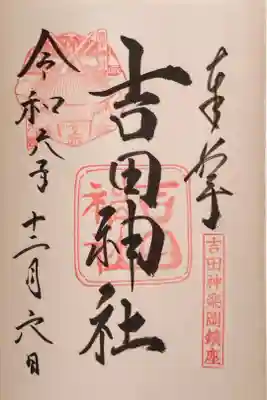 奉拝
吉田神楽岡鎮座
吉田神社
吉田
神社
令和六年十二月 日